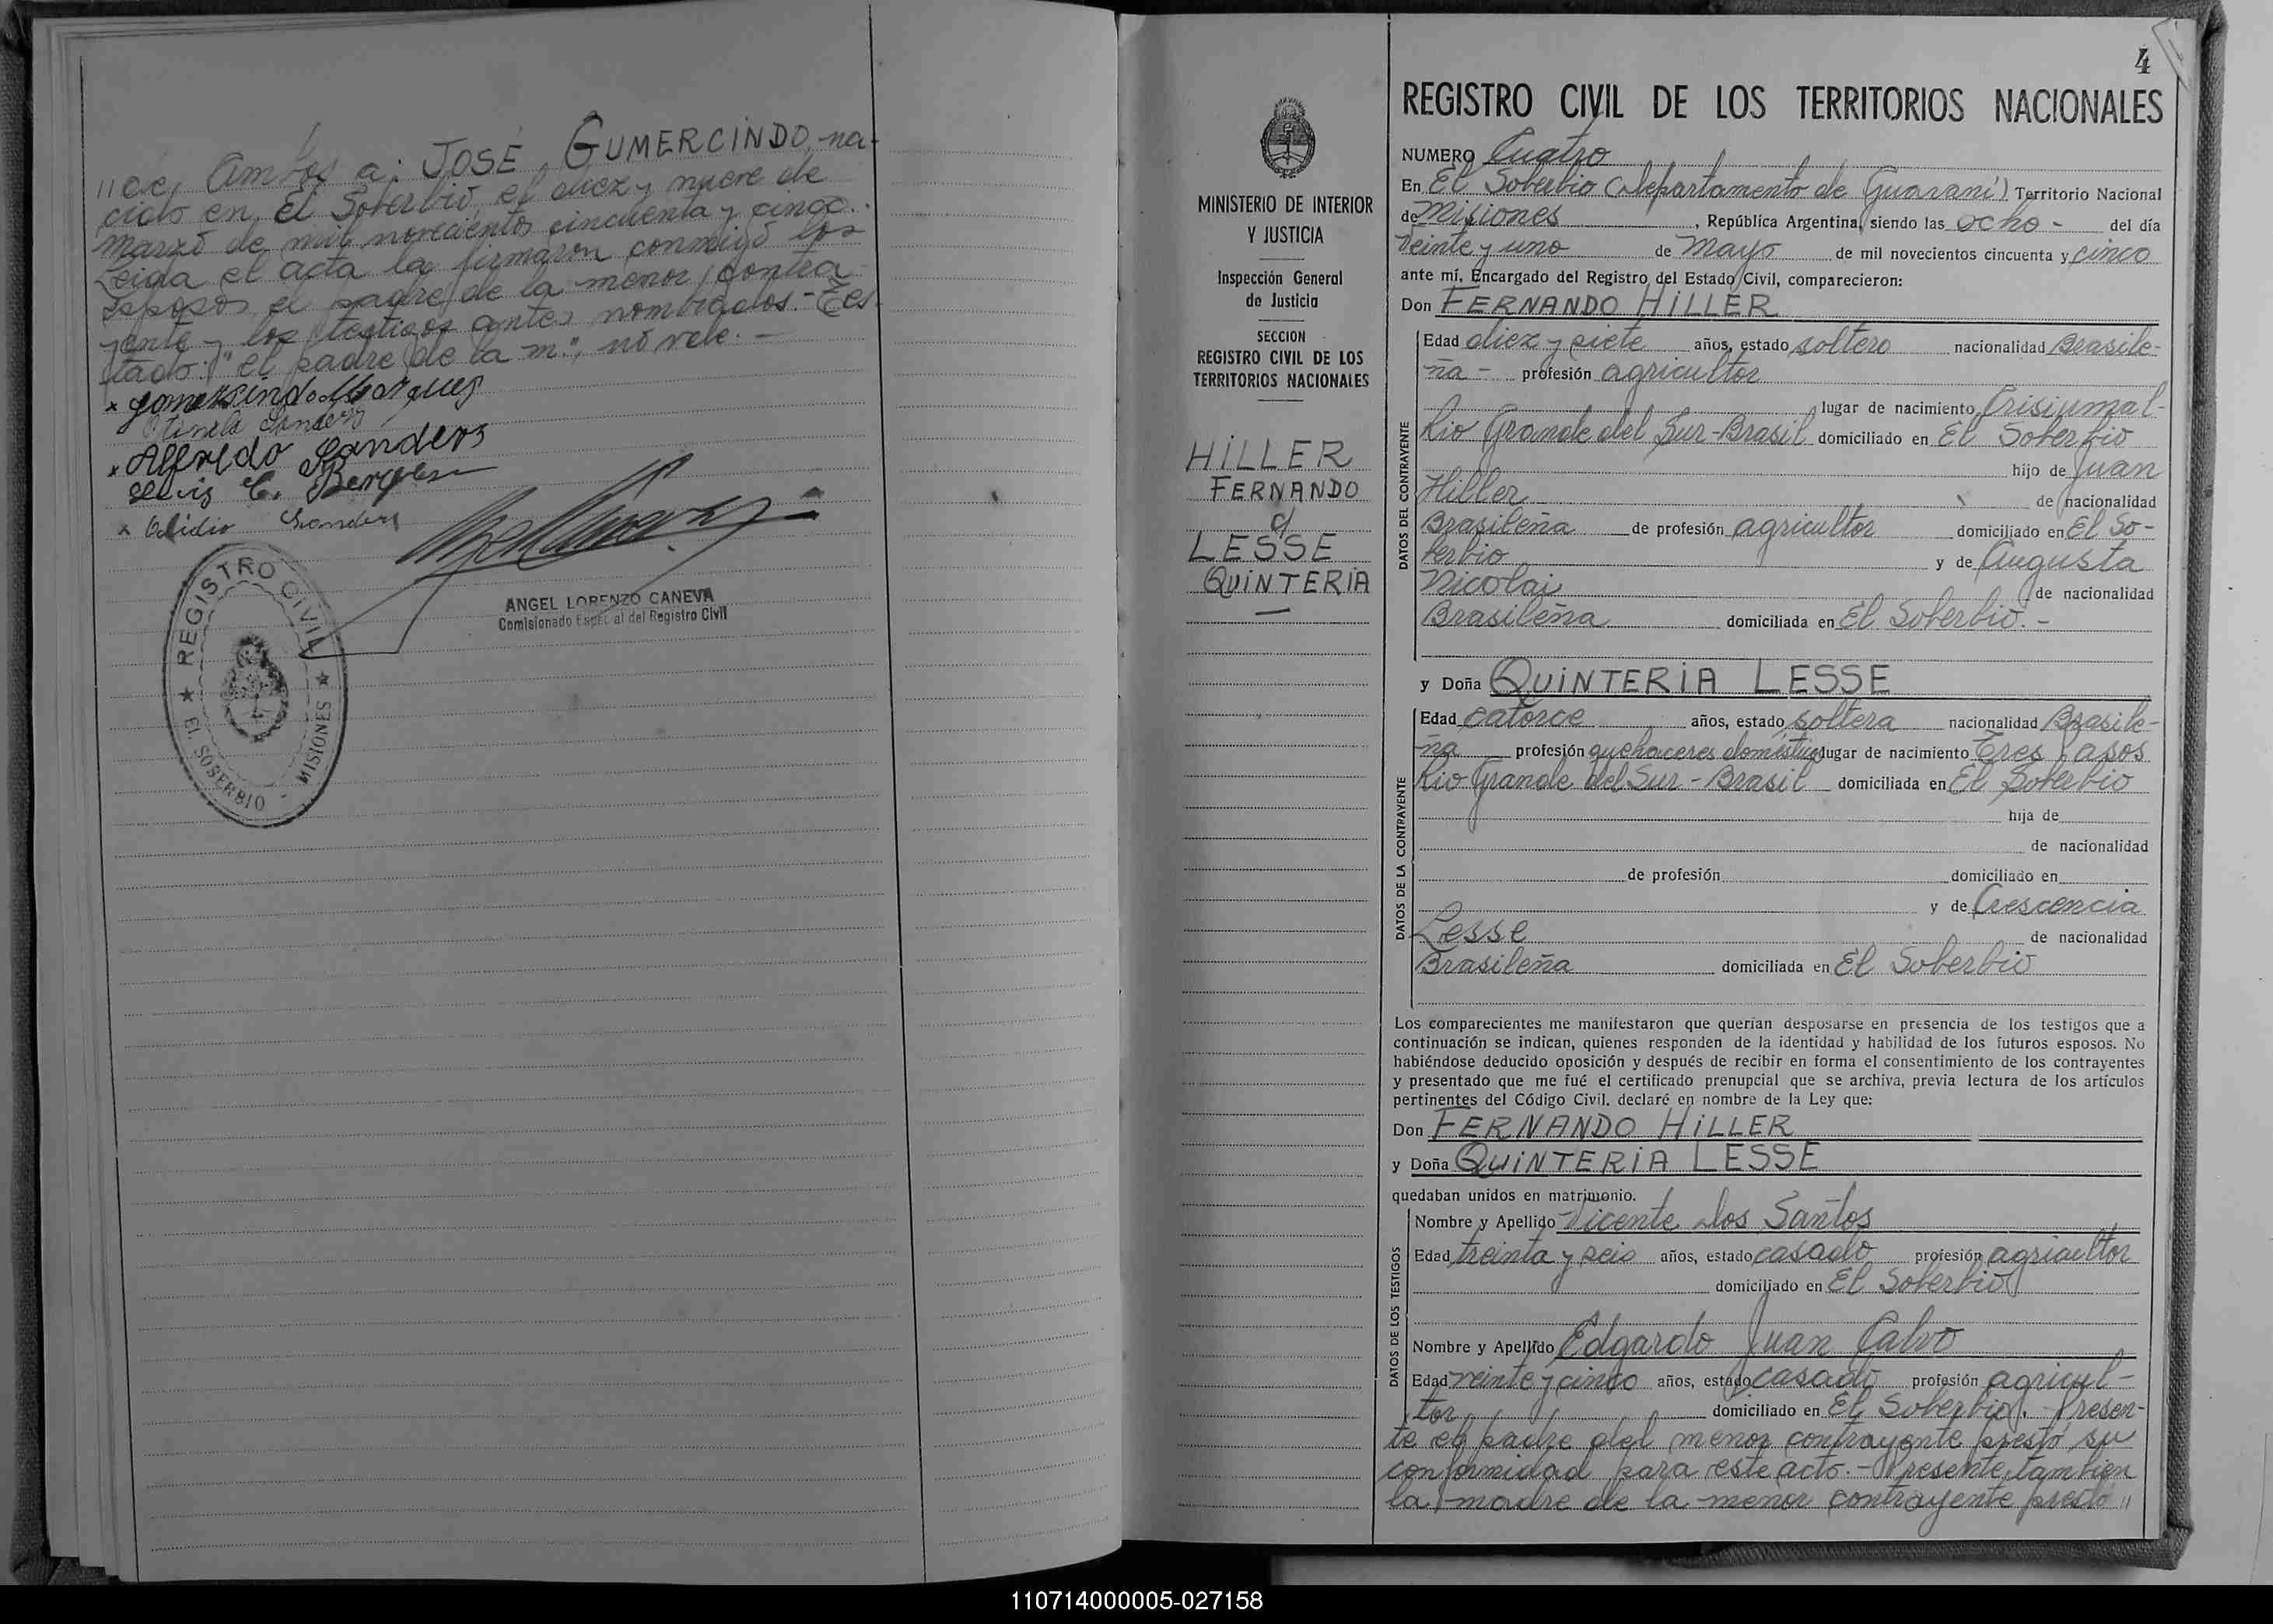 //ce, Ambos a: JOSÉ GUMERCINDO, na-
cido en El Soberbio el diez y nueve de
marzo de mil novecientos cincuenta y cinco.
Leida el acta la firmaron conmigo los
esposos, el padre de la menor contra-
yente y los testigos antes nombrados.- Tes-
tado: "el padre de la m.", no vale.-
Alfredo Sanders
Olidio Sanders
ANGEL LORENZO CANEVA
Comisionado Especial del Registro Civil
REGISTRO CIVIL
★ EL SOBERBIO - MISIONES ★
4
MINISTERIO DE INTERIOR
Y JUSTICIA
Inspección General
de Justicia
SECCION
REGISTRO CIVIL DE LOS
TERRITORIOS NACIONALES
HILLER
FERNANDO
c/
LESSE
QUINTERIA
REGISTRO CIVIL DE LOS TERRITORIOS NACIONALES
NUMERO Cuatro
En El Soberbio (Departamento de Guaraní) Territorio Nacional
de Misiones, República Argentina, siendo las ocho - del día
veinte y uno de Mayo de mil novecientos cincuenta y cinco
ante mí, Encargado del Registro del Estado Civil, comparecieron:
Don FERNANDO HILLER
DATOS DEL CONTRAYENTE
Edad diez y siete años, estado soltero nacionalidad Brasile-
ña - profesión agricultor
lugar de nacimiento Crisiumal-
Rio Grande del Sur-Brasil domiciliado en El Soberbio
hijo de Juan
Hiller de nacionalidad
Brasileña de profesión agricultor domiciliado en El So-
berbio y de Augusta
Nicolai de nacionalidad
Brasileña domiciliada en El Soberbio.-
y Doña QUINTERIA LESSE
DATOS DE LA CONTRAYENTE
Edad catorce años, estado soltera nacionalidad Brasile-
ña profesión quehaceres domésticos lugar de nacimiento Tres Pasos
Rio Grande del Sur - Brasil domiciliada en El Soberbio
hija de
de nacionalidad
de profesión domiciliado en
y de Crescencia
Lesse de nacionalidad
Brasileña domiciliada en El Soberbio
Los comparecientes me manifestaron que querían desposarse en presencia de los testigos que a
continuación se indican, quienes responden de la identidad y habilidad de los futuros esposos. No
habiéndose deducido oposición y después de recibir en forma el consentimiento de los contrayentes
y presentado que me fué el certificado prenupcial que se archiva, previa lectura de los artículos
pertinentes del Código Civil, declaré en nombre de la Ley que:
Don FERNANDO HILLER
y Doña QUINTERIA LESSE
quedaban unidos en matrimonio.
DATOS DE LOS TESTIGOS
Nombre y Apellido Vicente dos Santos
Edad treinta y seis años, estado casado profesión agricultor
domiciliado en El Soberbio
Nombre y Apellido Edgardo Juan Calvo
Edad veinte y cinco años, estado casado profesión agricul-
tor domiciliado en El Soberbio.- Presen-
te el padre del menor contrayente prestó su
conformidad para este acto.- Presente tambien
la madre de la menor contrayente prestó //
110714000005-027158